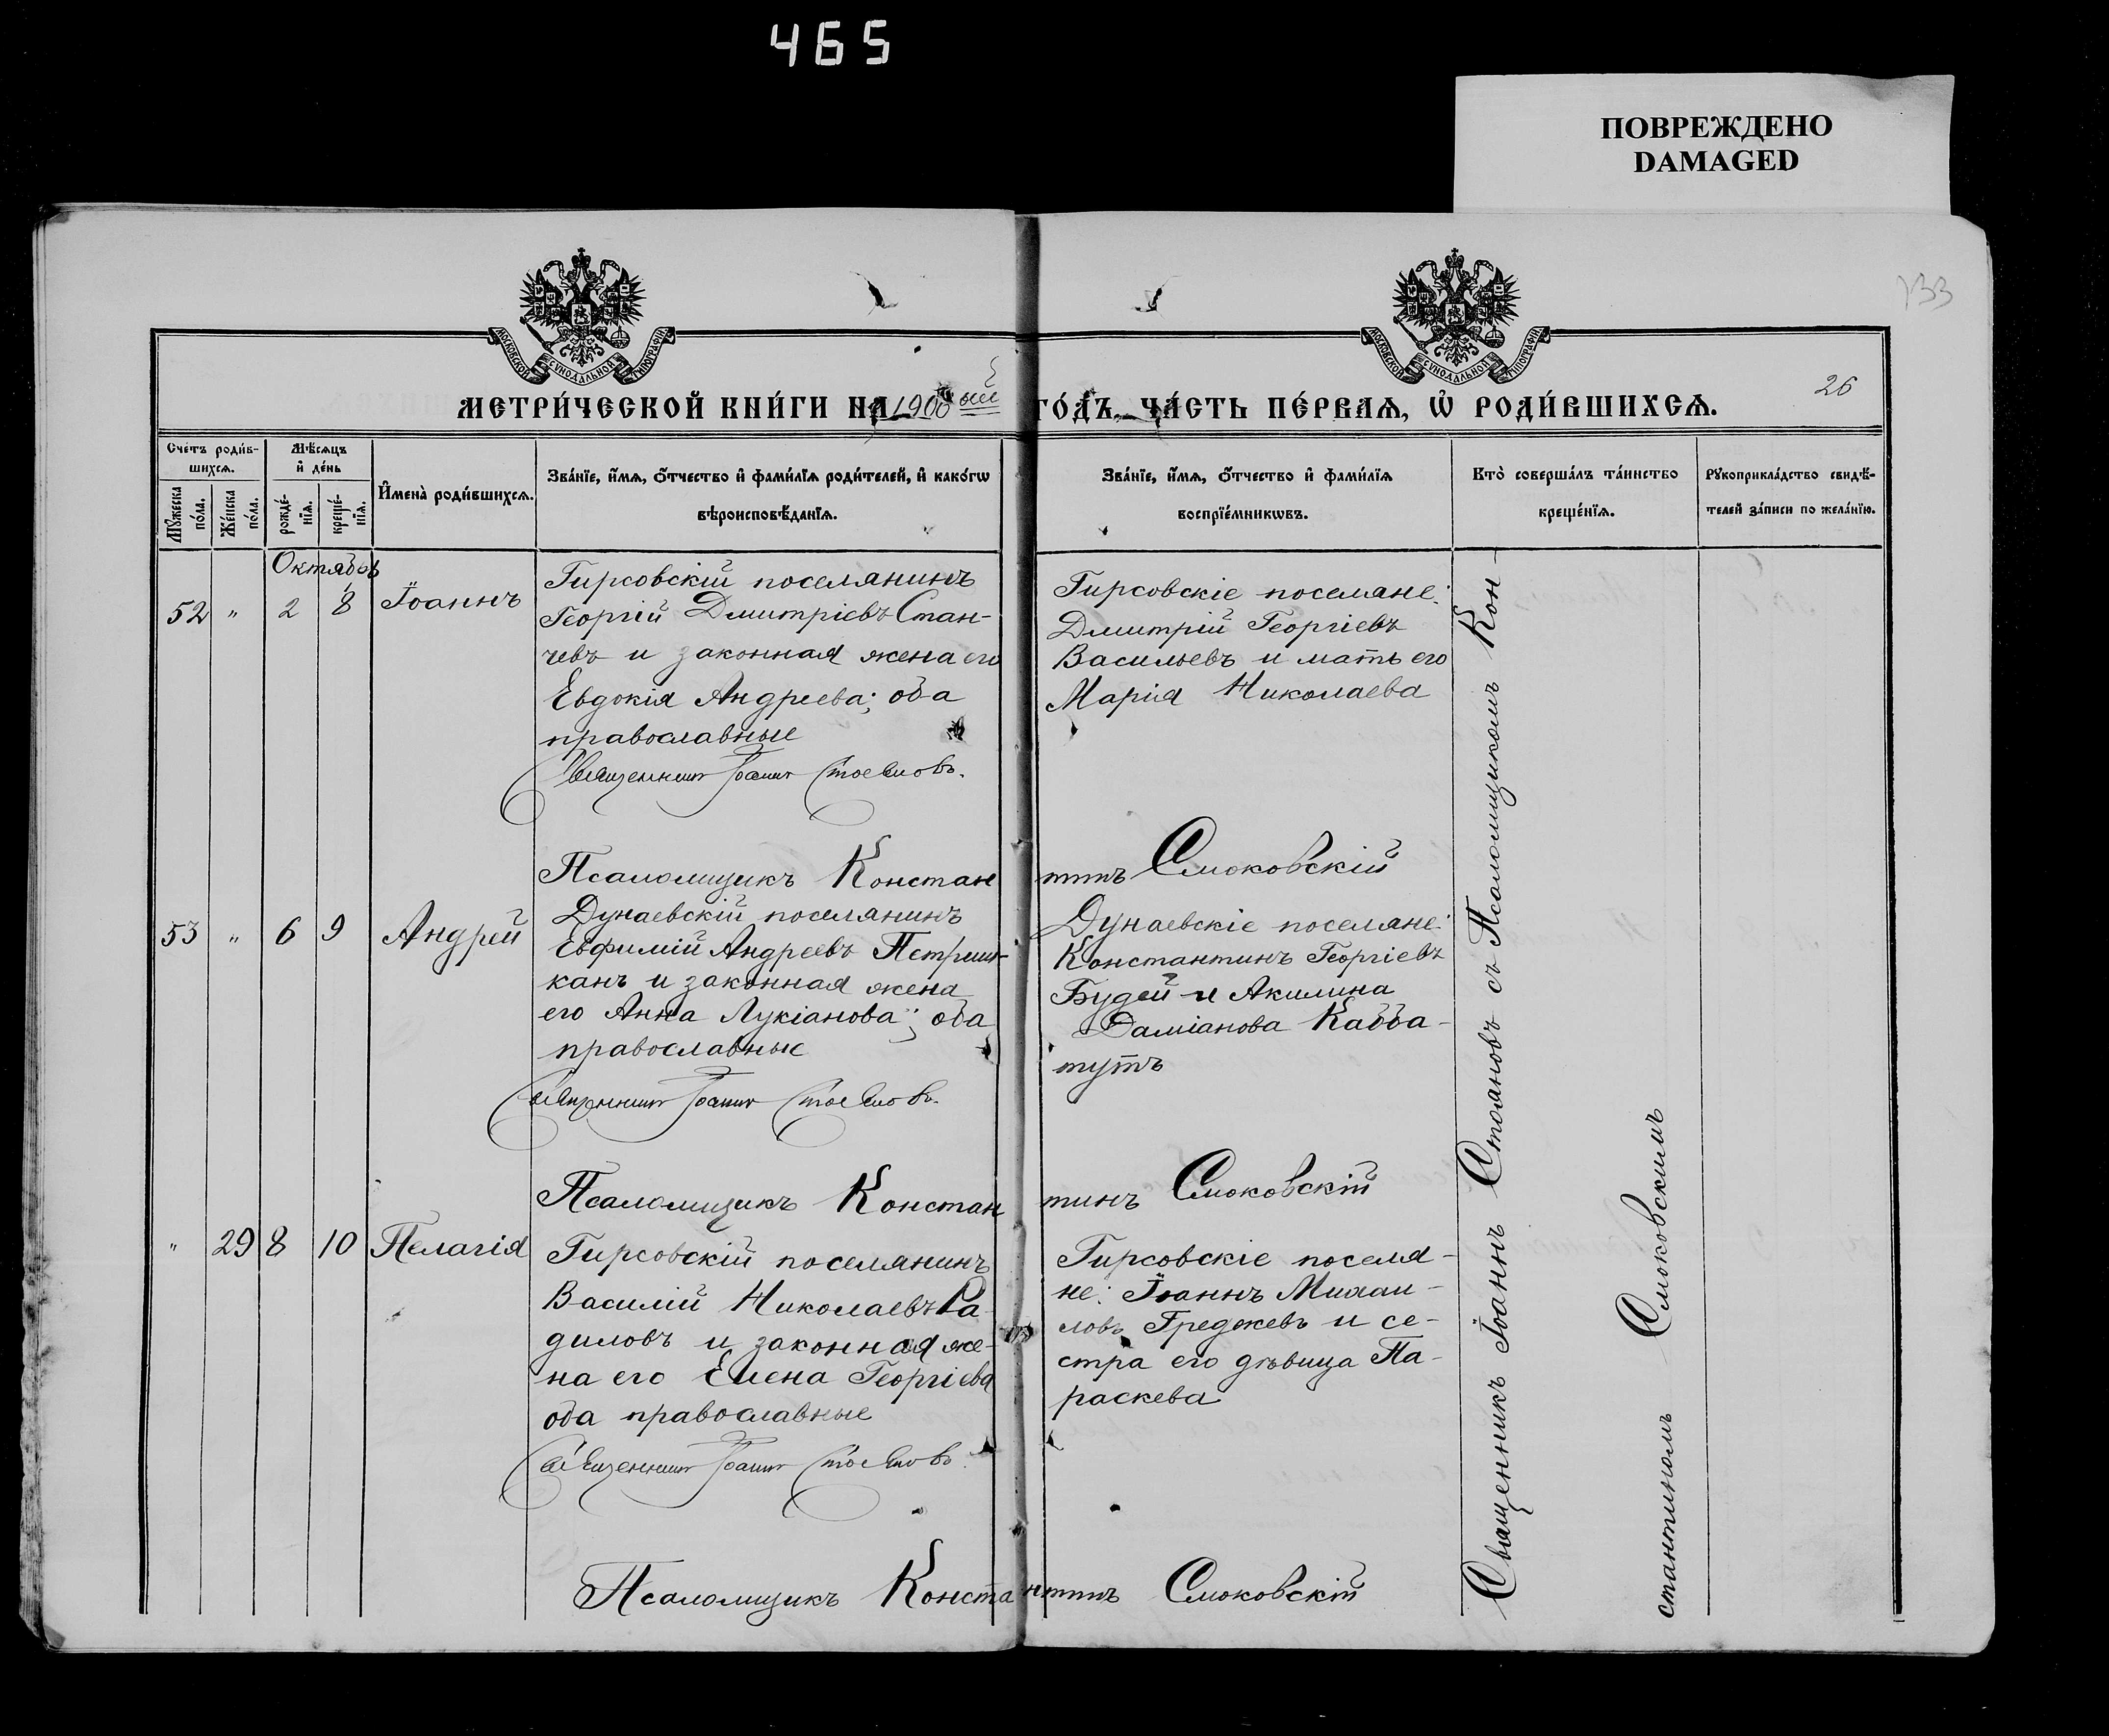 465
ПОВРЕЖДЕНО
DAMAGED
133
МОСКОВСКОЙ СѴНОДАЛЬНОЙ ТИПОГРАФІИ
МОСКОВСКОЙ СѴНОДАЛЬНОЙ ТИПОГРАФІИ
26
МЕТРИ́ЧЕСКОЙ КНИ́ГИ НА 1900ый ГО́ДЪ, ЧА́СТЬ ПЕ́РВАѦ, Ѡ҆ РОДИ́ВШИХСѦ.
Сче́тъ роди́в-
шихсѧ.
Мꙋ́жеска
по́ла.
Же́нска
по́ла.
Мѣ́сѧцъ
и҆ де́нь
рожде́-
нїѧ.
креще́-
нїѧ.
И҆мена̀ роди́вшихсѧ.
Зва́нїе, и҆́мѧ, ѻ҆́тчество и҆ фами́лїѧ роди́телей, и҆ како́гѡ
вѣроисповѣ́данїѧ.
Зва́нїе, и҆́мѧ, ѻ҆́тчество и҆ фами́лїѧ
воспрїе́мникѡвъ.
Кто̀ соверша́лъ та́инство
креще́нїѧ.
Рꙋкоприкла́дство свидѣ́-
телей за́писи по жела́нїю.
Октябрь
52 " 2 8 Іоаннъ
Гирсовскій поселянинъ
Георгій Дмитріевъ Стан-
чевъ и законная жена его
Евдокія Андреева; оба
православные
Священникъ Іоаннъ Стояновъ.
Гирсовскіе поселяне:
Дмитрій Георгіевъ
Васильевъ и мать его
Марія Николаева
Псаломщикъ Константинъ Смоковскій
53 " 6 9 Андрей
Дунаевскій поселянинъ
Евфимій Андреевъ
канъ и законная жена
его Анна Лукіанова; оба
православные
Священникъ Іоаннъ Стояновъ.
Дунаевскіе поселяне:
Константинъ Георгіевъ
Будей и Акилина
Даміанова Кабба-
тутъ
Псаломщикъ Константинъ Смоковскій
" 29 8 10 Пелагія
Гирсовскій поселянинъ
Василій Николаевъ Ра-
диловъ и законная же-
на его Елена Георгіева
оба православные
Священникъ Іоаннъ Стояновъ.
Гирсовскіе поселя-
не: Іоаннъ Михаи-
ловъ Греджевъ и се-
стра его дѣвица Па-
раскева
Псаломщикъ Константинъ Смоковскій
Священникъ Іоаннъ Стояновъ съ Псаломщикомъ Кон-
стантиномъ Смоковскимъ